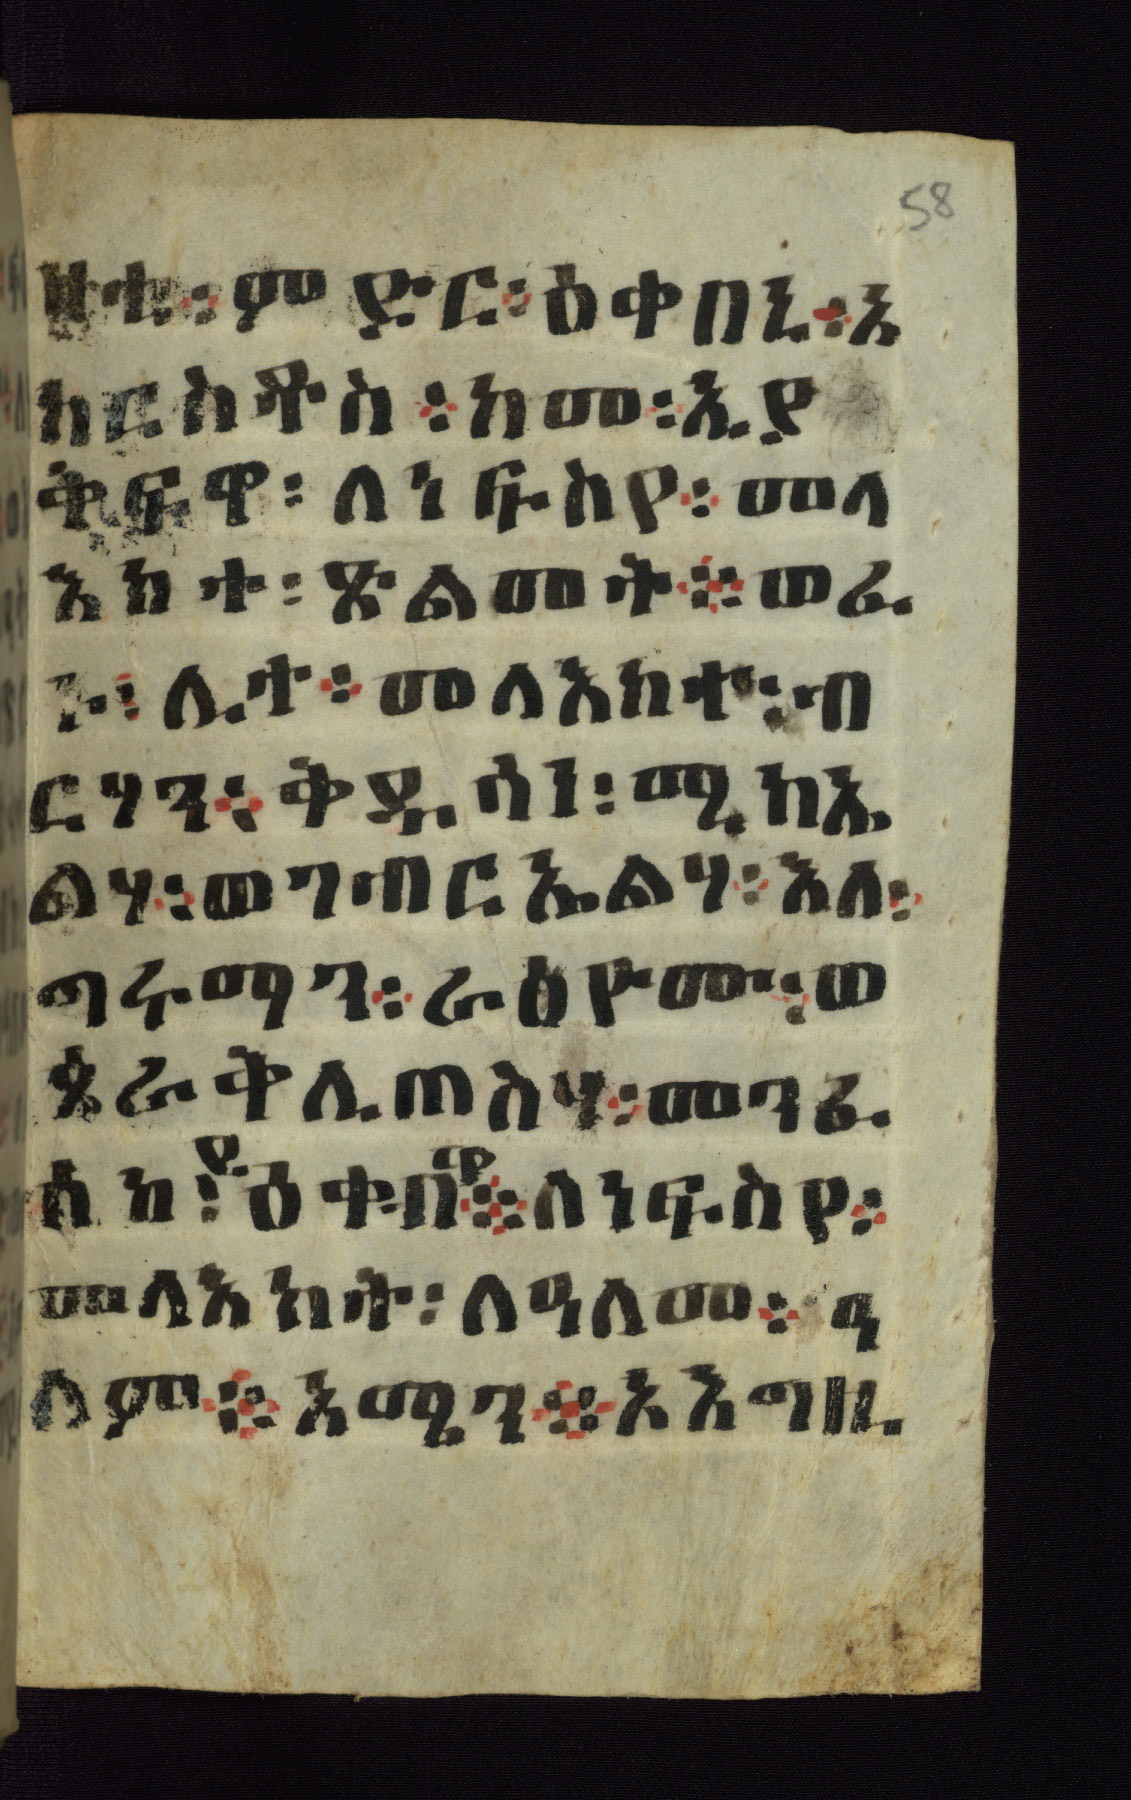 58
ዛቲ፡ ምድር፡ ዕቀበኒ፡ እ
ክርስቶስ፡ ከመ፡ ኢያ
ቅፍዋ፡ ለነፍስየ፡ መላ
እክተ፡ ጽልመት፨ ወፈ
ኑ፡ ሊተ፡ መላእክተ፡ ብ
ርሃን፡ ቅዱሳነ፡ ሚካኤ
ልሃ፡ ወገብርኤልሃ፡ እለ፡
ግሩማን፡ ራዕዮሙ፡ ወ
ጰራቅሊጦስሃ፡ መንፈ
ሰከ፡ ይዕቀብዋ፨ ለነፍስየ፡
መላእክት፡ ለዓለመ፡ ዓ
ለም፨ አሜን፨ ኦእግዚ